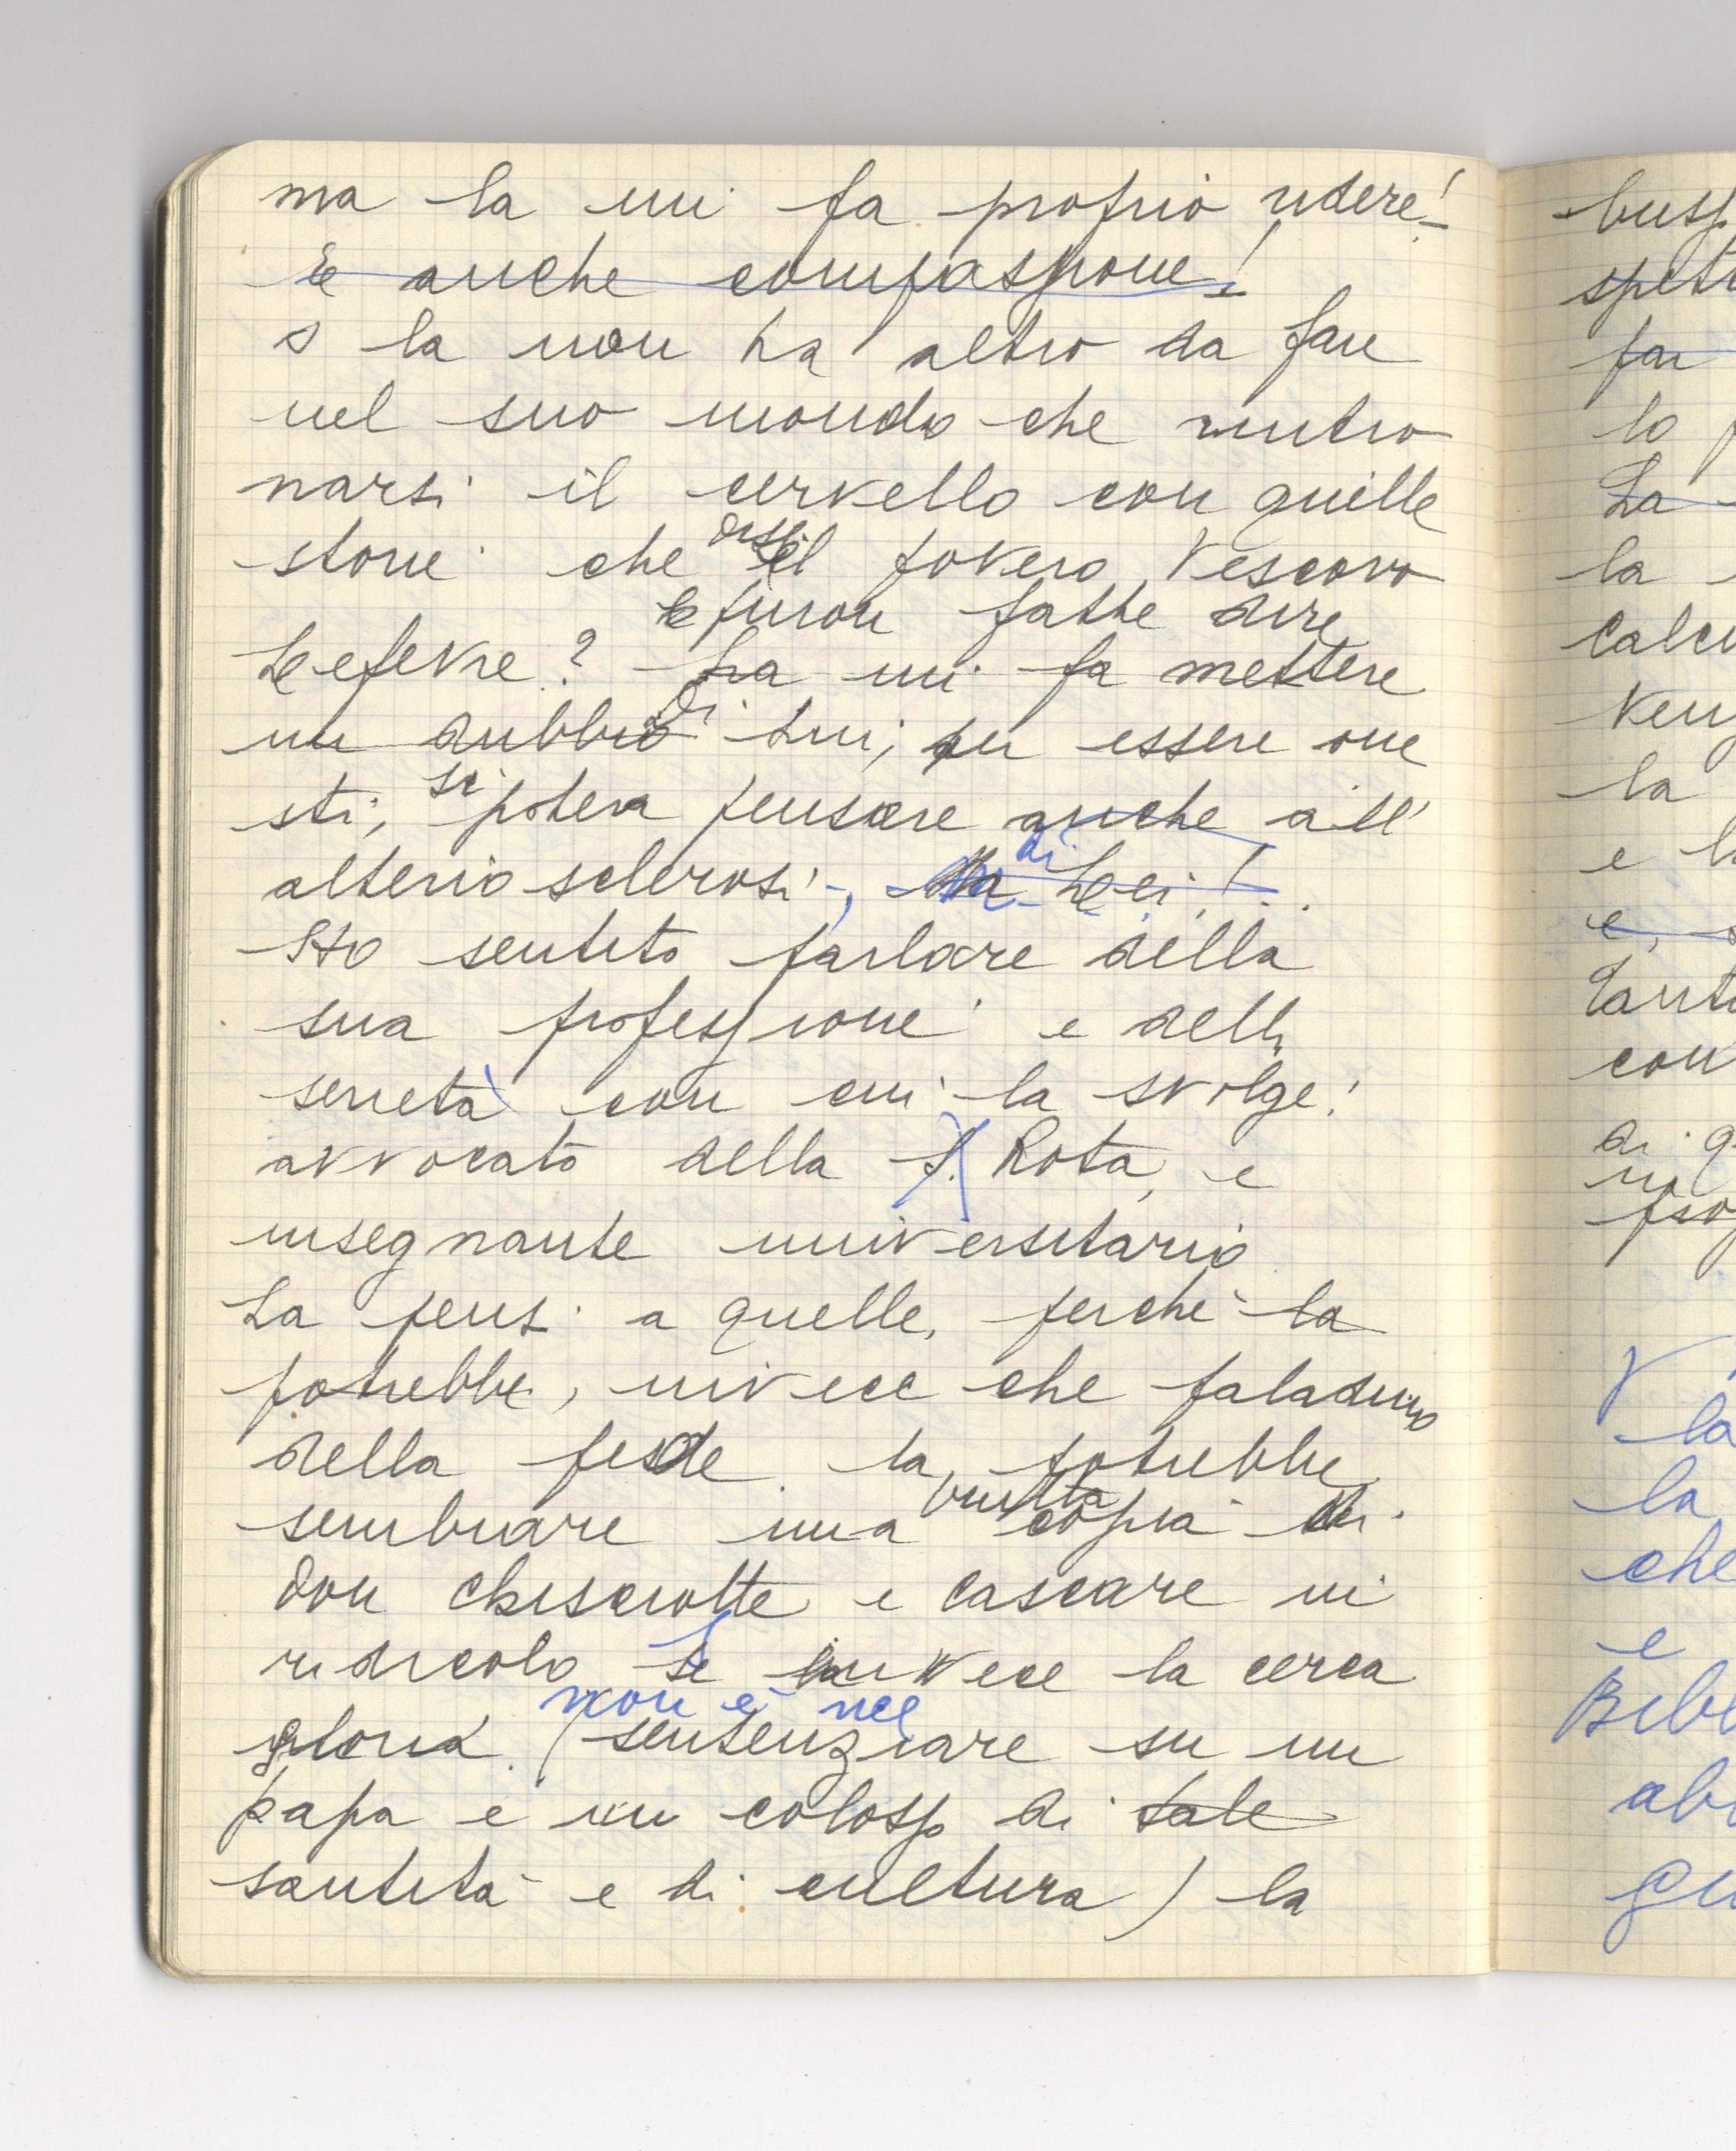 ma la mi fa proprio ridere!
E anche compassione!
o la non ha altro da fare
nel suo mondo che rintro
narsi il cervello con quelle
storie che disse il povero Vescovo
le furon fatte dire
Lefevre? La mi fa mettere
un dubbio di Lui; per essere one
sti, si poteva pensare anche all'
alterio sclerosi, Ma di Lei!..
Ho sentito parlare della
sua professione e della
serietà con cui la svolge!
avvocato della S. Rota, e
insegnante universitario
La pensi a quelle, perchè la
potrebbe, invece che paladino
della fede la potrebbe
sembrare una brutta copia di
don chisciotte e cascare in
ridicolo Se invece la cerca
non è nel
gloria. (sentenziare su un
papa e un colosso di tale
santità e di cultura) la
spet
far
lo
La
la
calcu
la
e
con
di q
V
la
la
che
e
Bib
ab
gu